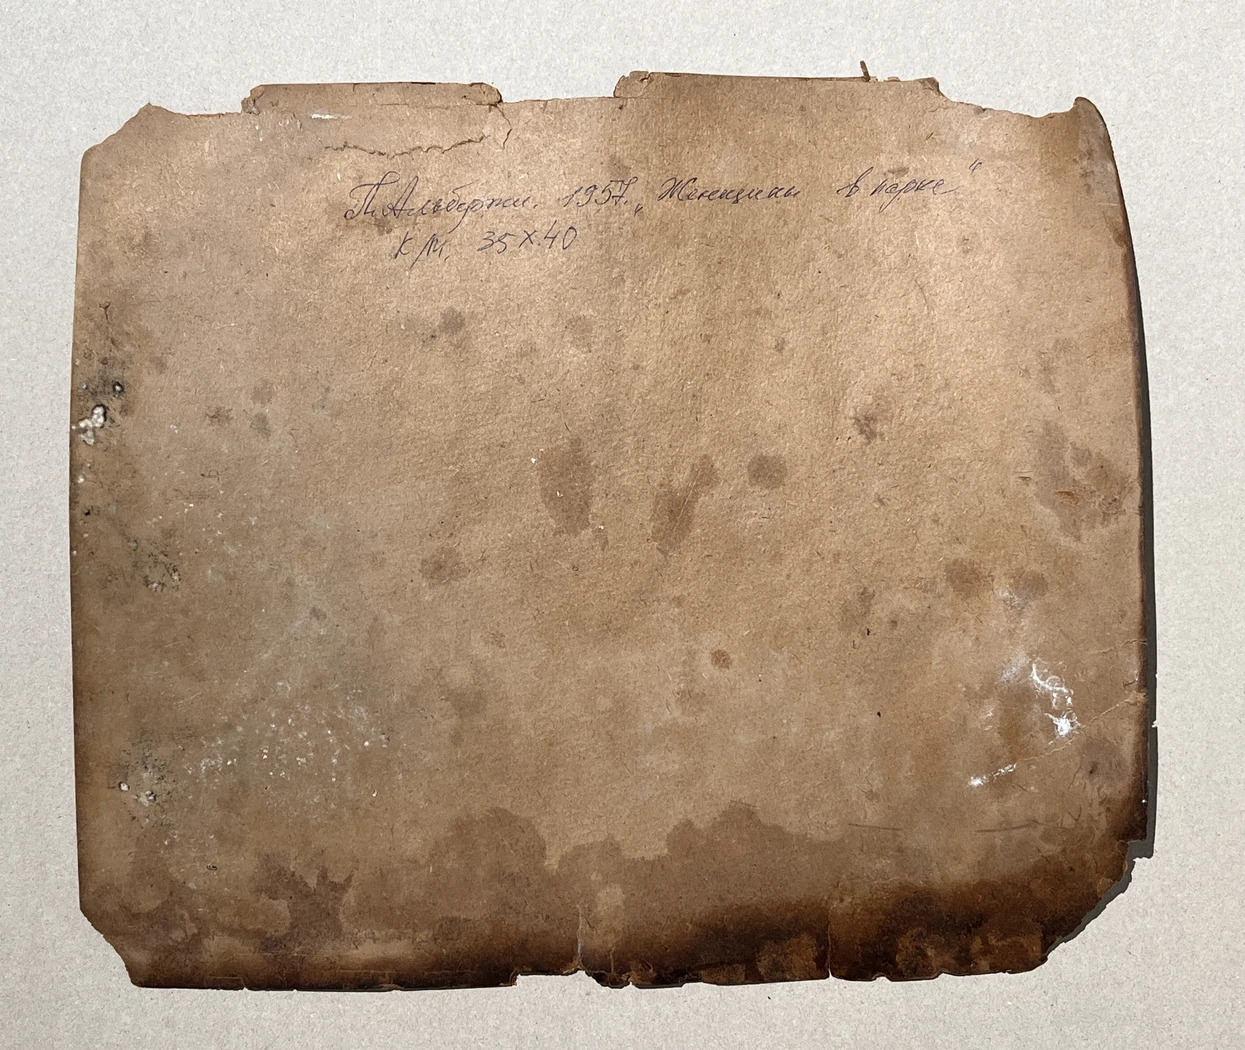 П. Альбержи. 1957. „Женщины в парке"
К/М. 35Х40